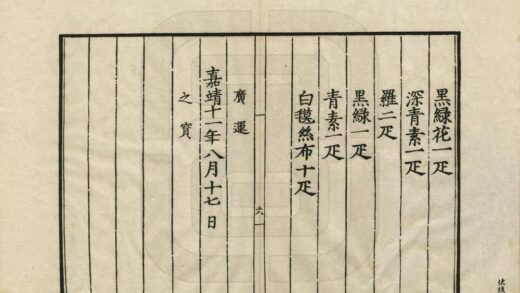 黑綠花一疋
深青素一疋
羅二疋
黑綠一疋
青素一疋
白㲲絲布十疋
六
廣運
嘉靖十一年八月十七日
之寶
使